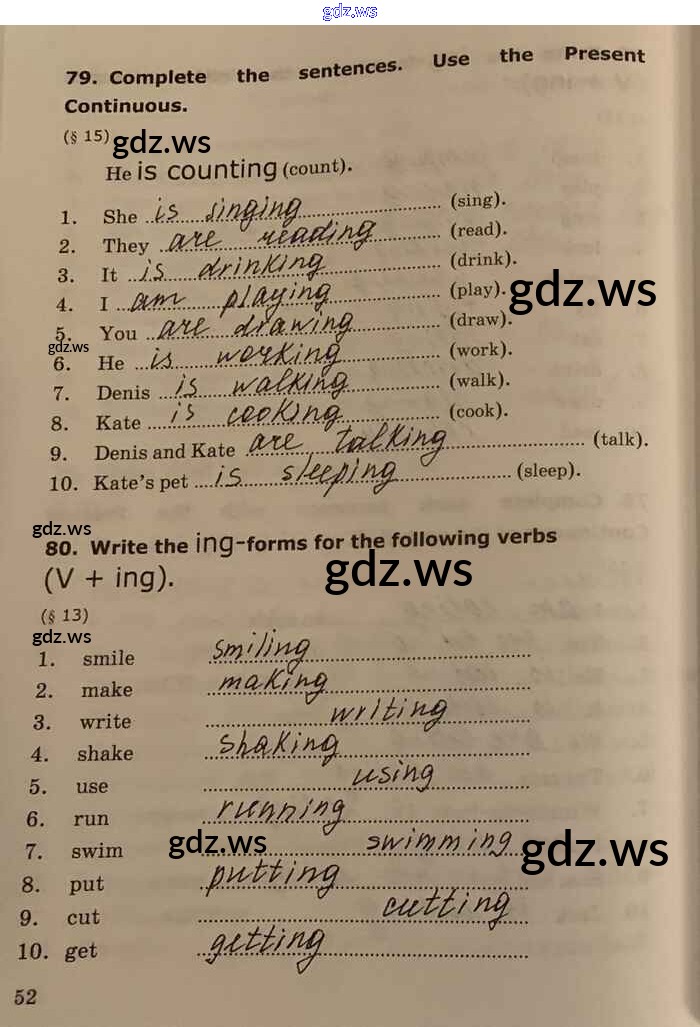 gdz.ws
79. Complete the sentences. Use the Present
Continuous.
(§ 15) gdz.ws
He is counting (count).
1. She is singing (sing).
2. They are reading (read).
3. It is drinking (drink).
4. I am playing (play). gdz.ws
5. You are drawing (draw).
gdz.ws
6. He is working (work).
7. Denis is walking (walk).
8. Kate is cooking (cook).
9. Denis and Kate are talking (talk).
10. Kate's pet is sleeping (sleep).
gdz.ws
80. Write the ing-forms for the following verbs
(V + ing). gdz.ws
(§ 13)
gdz.ws
1. smile smiling
2. make making
3. write writing
4. shake shaking
5. use using
6. run running
7. swim gdz.ws swimming gdz.ws
8. put putting
9. cut cutting
10. get getting
52